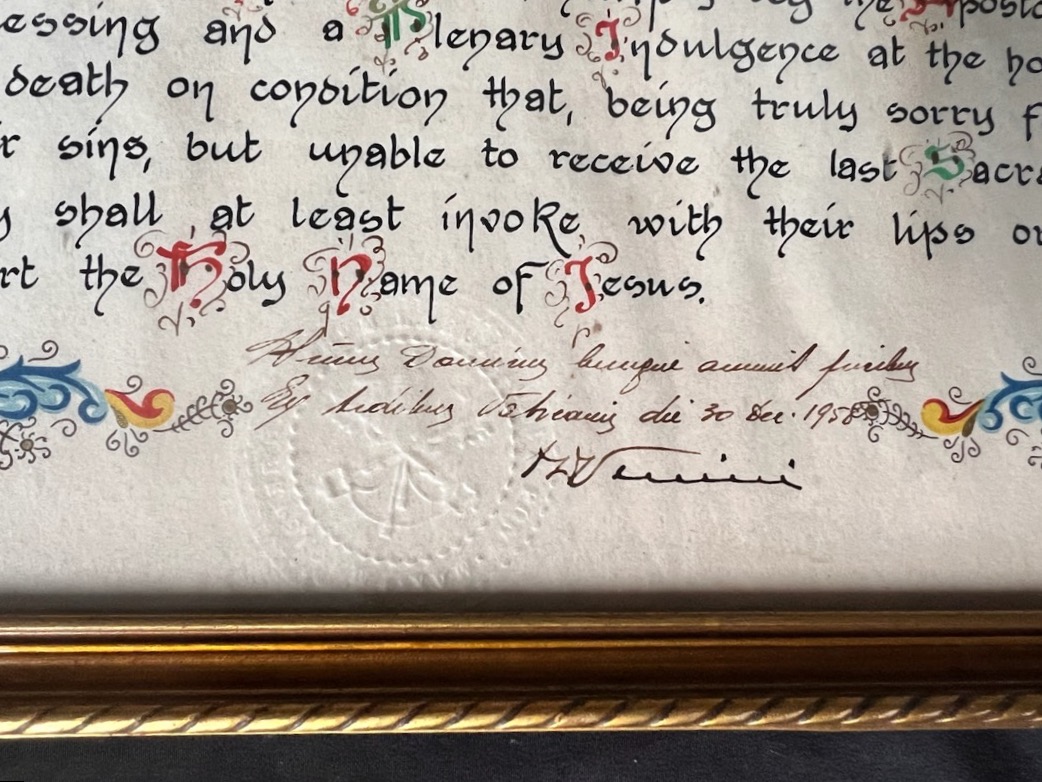 essing and a Plenary Indulgence at the ho
death on condition that, being truly sorry f
r sins, but unable to receive the last Sacra
y shall at least invoke with their lips or
rt the Holy Name of Jesus.
Dominus benigne annuit precibus
Ex Aedibus Vaticanis die 30 Dec. 1958